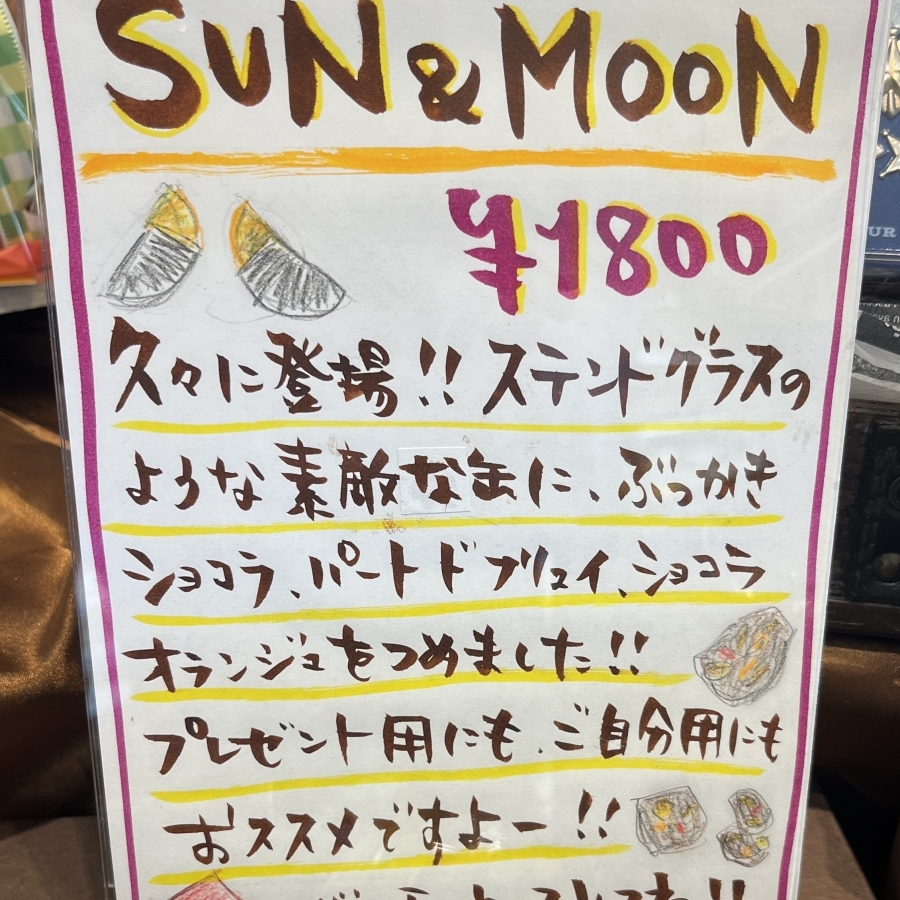 SUN & MOON
¥1800
久々に登場!! ステンドグラスの
ような素敵な缶に、ぶっかき
ショコラ、パートドブリュイ、ショコラ
オランジュをつめました!!
プレゼント用にも、ご自分用にも
おススメですよー!!
UR